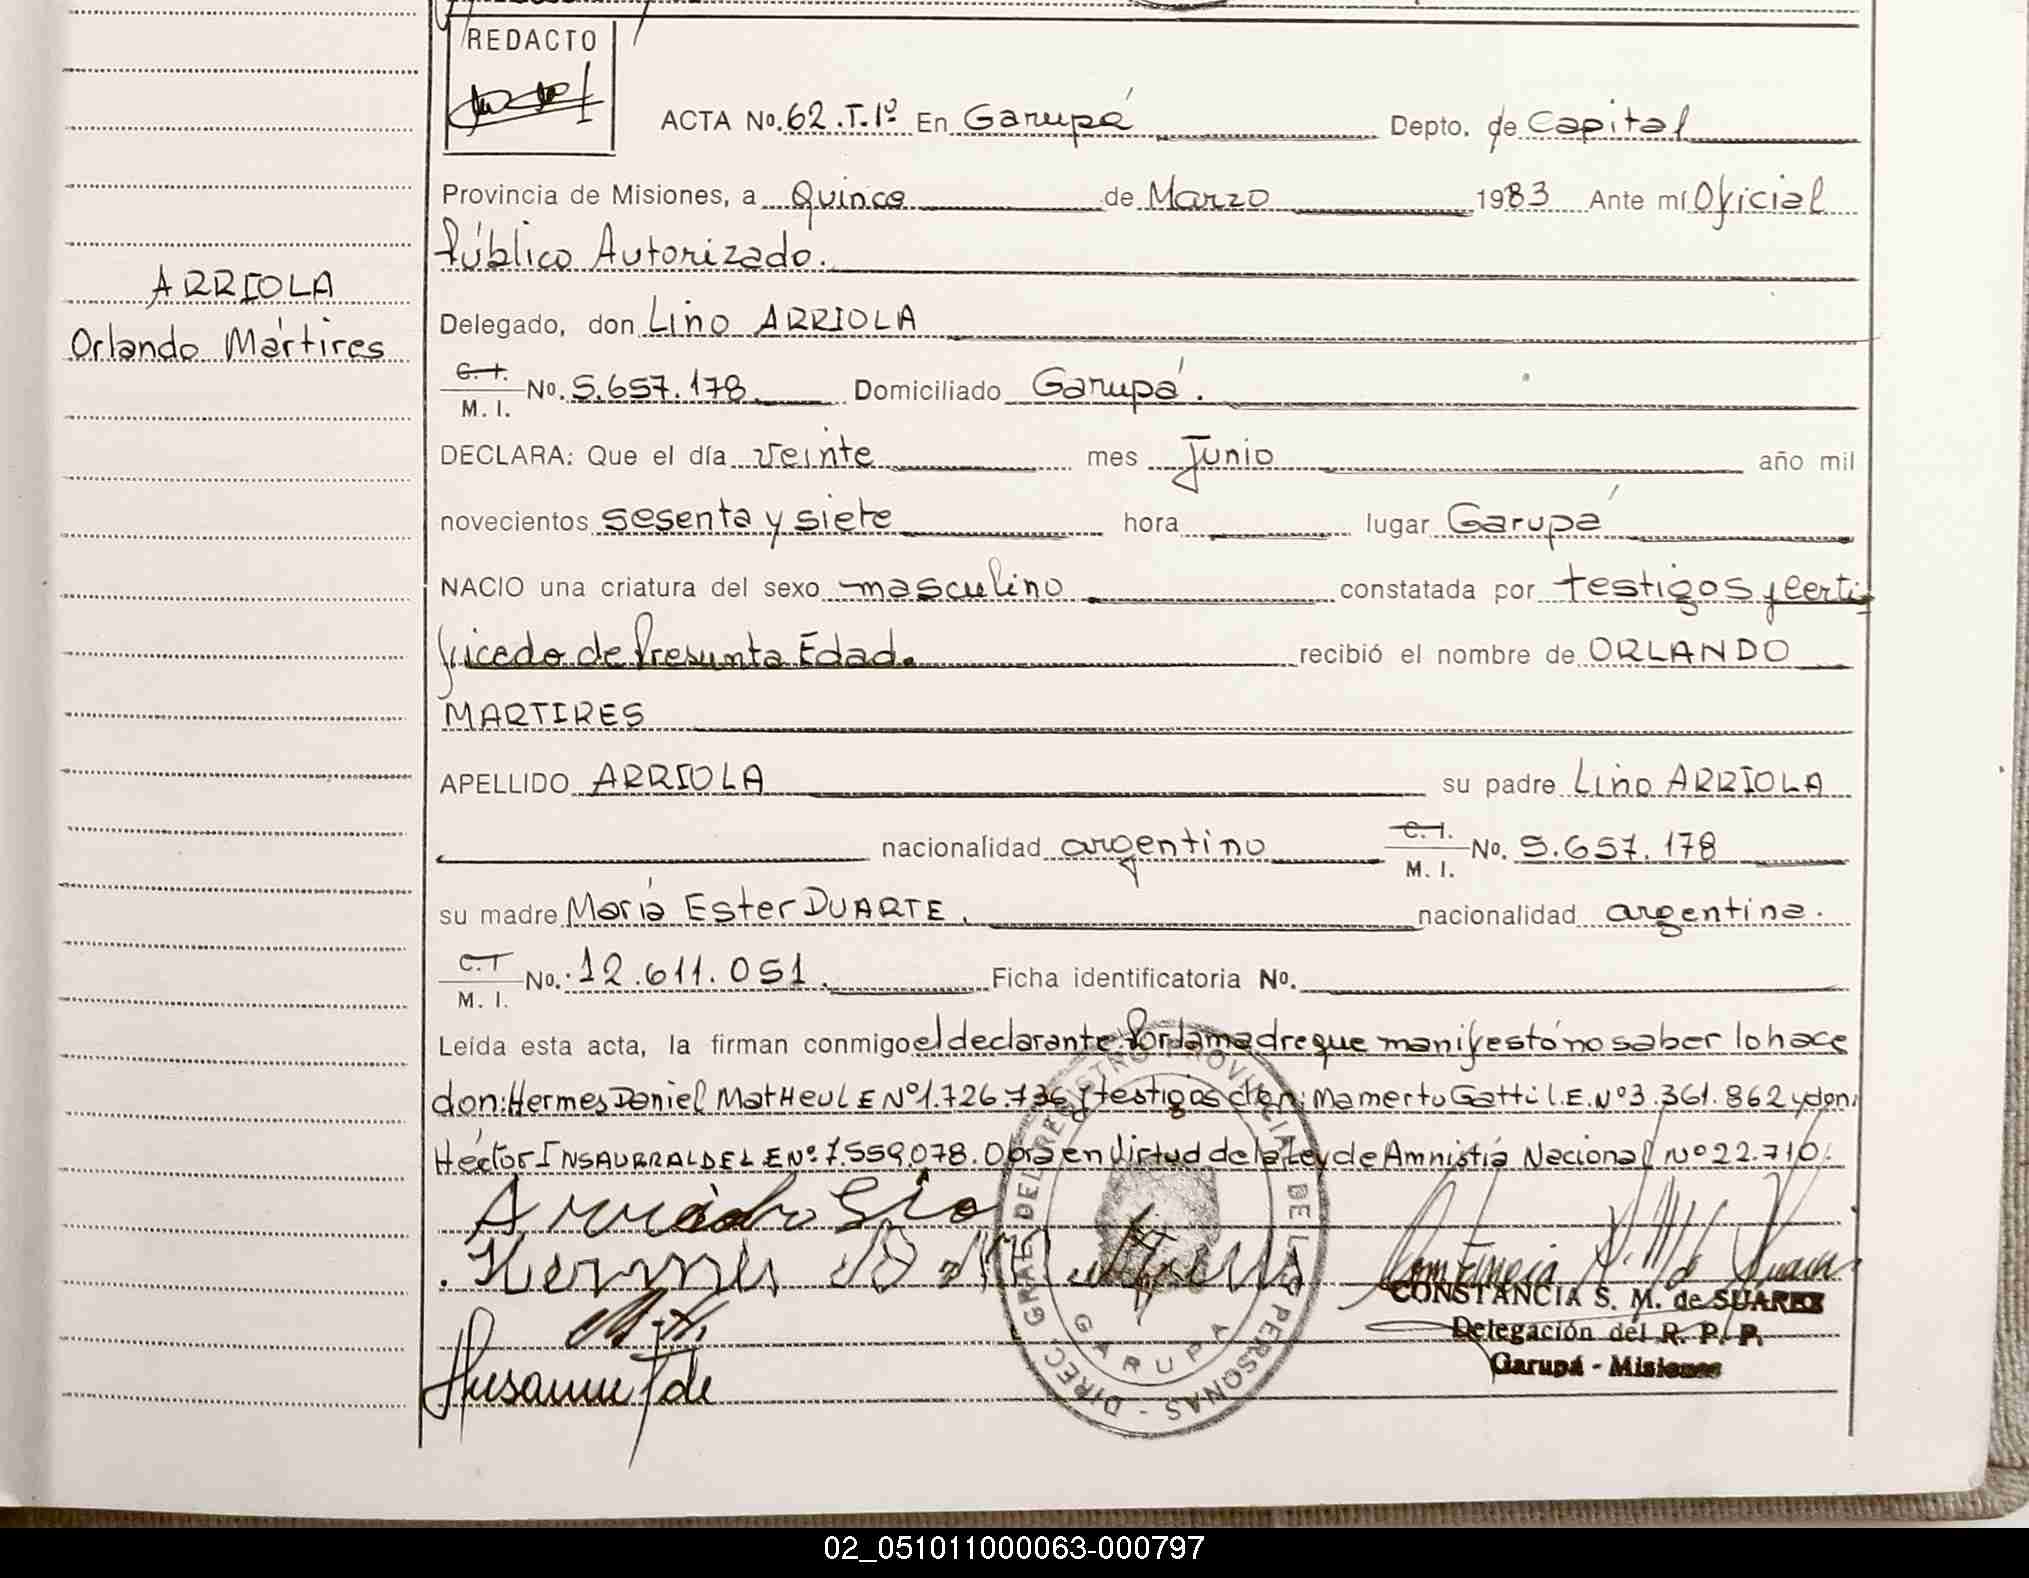 REDACTO
ACTA No. 62.T.1º En Garupá Depto. de Capital
Provincia de Misiones, a Quince de Marzo 1983 Ante mí Oficial
Público Autorizado.
ARRIOLA
Orlando Mártires
Delegado, don Lino ARRIOLA
C. I.
M. I. No. 5.657.178 Domiciliado Garupá.
DECLARA: Que el día veinte mes Junio año mil
novecientos sesenta y siete hora lugar Garupá
NACIO una criatura del sexo masculino constatada por testigos y certi
ficado de Presunta Edad. recibió el nombre de ORLANDO
MARTIRES
APELLIDO ARRIOLA su padre Lino ARRIOLA
nacionalidad argentino C. I.
M. I. No. 5.657.178
su madre María Ester DUARTE. nacionalidad argentina.
C. I.
M. I. No. 12.611.051. Ficha identificatoria No.
Leída esta acta, la firman conmigo el declarante. Por la madre que manifestó no saber lo hace
don: Hermes Daniel MatHeu L E Nº 1.726.736 y testigos don: Mamerto Gatti L.E. Nº 3.361.862 y don:
Héctor INSAURRALDE L E Nº 7.559.078. Obra en Virtud de la Ley de Amnistía Nacional Nº 22.710.
DIREC. GRAL. DEL REGISTRO PROVINCIAL DE LAS PERSONAS -
GARUPA
CONSTANCIA S. M. de SUAREZ
Delegación del R. P. P.
Garupá - Misiones
02_051011000063-000797